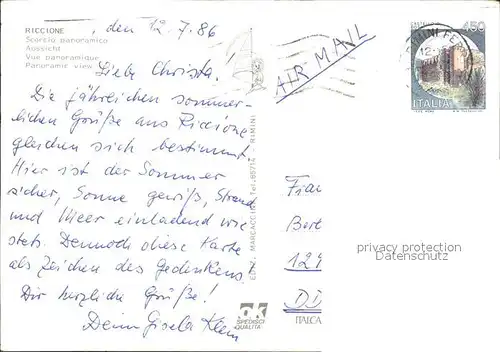 RICCIONE
Scorcio panoramico
Aussicht
Vue panoramique
Panoramic view
, den 12.7.86
Liebe Christa!
Die jährlichen sommer-
lichen Grüße aus Riccione
gleichen sich bestimmt.
Hier ist der Sommer
sicher, Sonne gewiß, Strand
und Meer einladend wie
stets. Dennoch diese Karte
als Zeichen des Gedenkens!
Dir herzliche Grüße!
Deine Gisela Klein
AIR MAIL
RIMINI
450
ITALIA
Frau
Bert
129
DD
privacy protection
Datenschutz
EDIZ. MARCACCINI - Tel. 85714 - RIMINI
ok
SPEDISCI
QUALITÀ
ITALCA